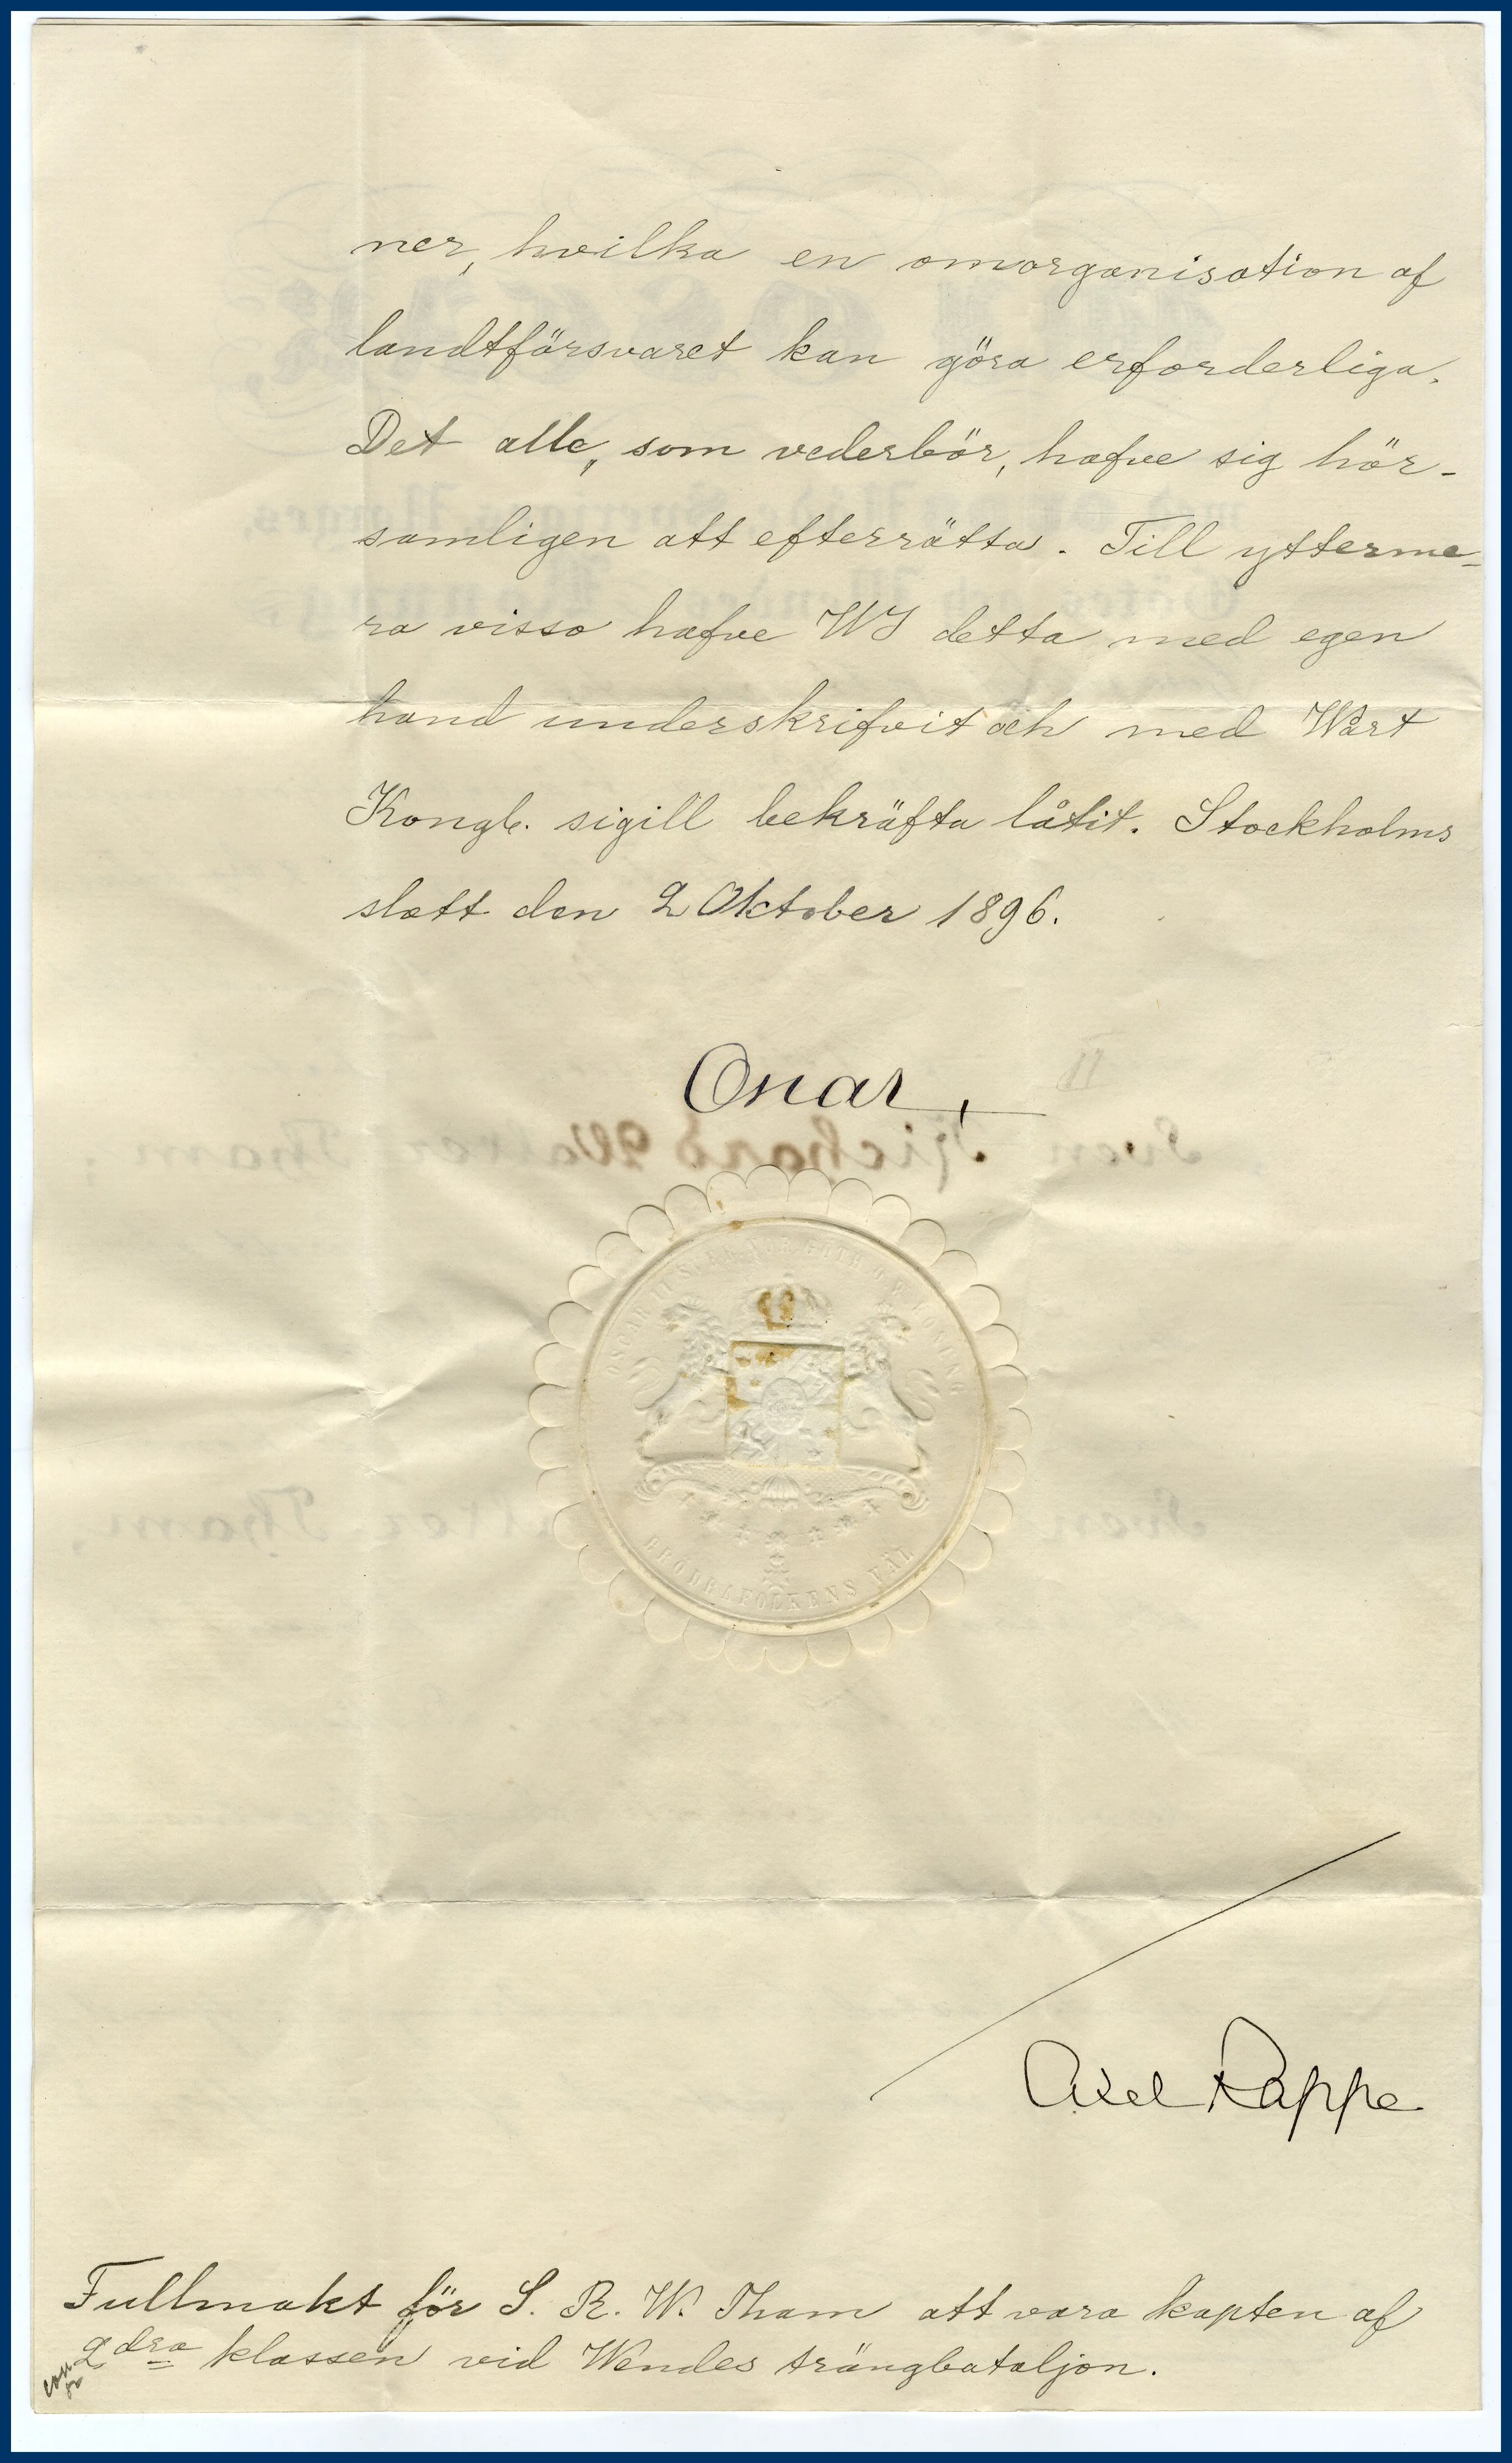 ner, hvilka en omorganisation af
landtförsvaret kan göra erforderliga.
Det alle, som vederbör, hafve sig hör-
samligen att efterrätta. Till ytterme-
ra visso hafve WI detta med egen
hand underskrifvit och med Wårt
Kongl. sigill bekräfta låtit. Stockholms
slott den 2 Oktober 1896.
Oscar
OSCAR II SV. N. G. O. V. KONUNG
BRÖDRAFOLKENS VÄL
Axel Rappe
Fullmakt för S. R. W. Tham att vara kapten af
2dra klassen vid Wendes trängbataljon.